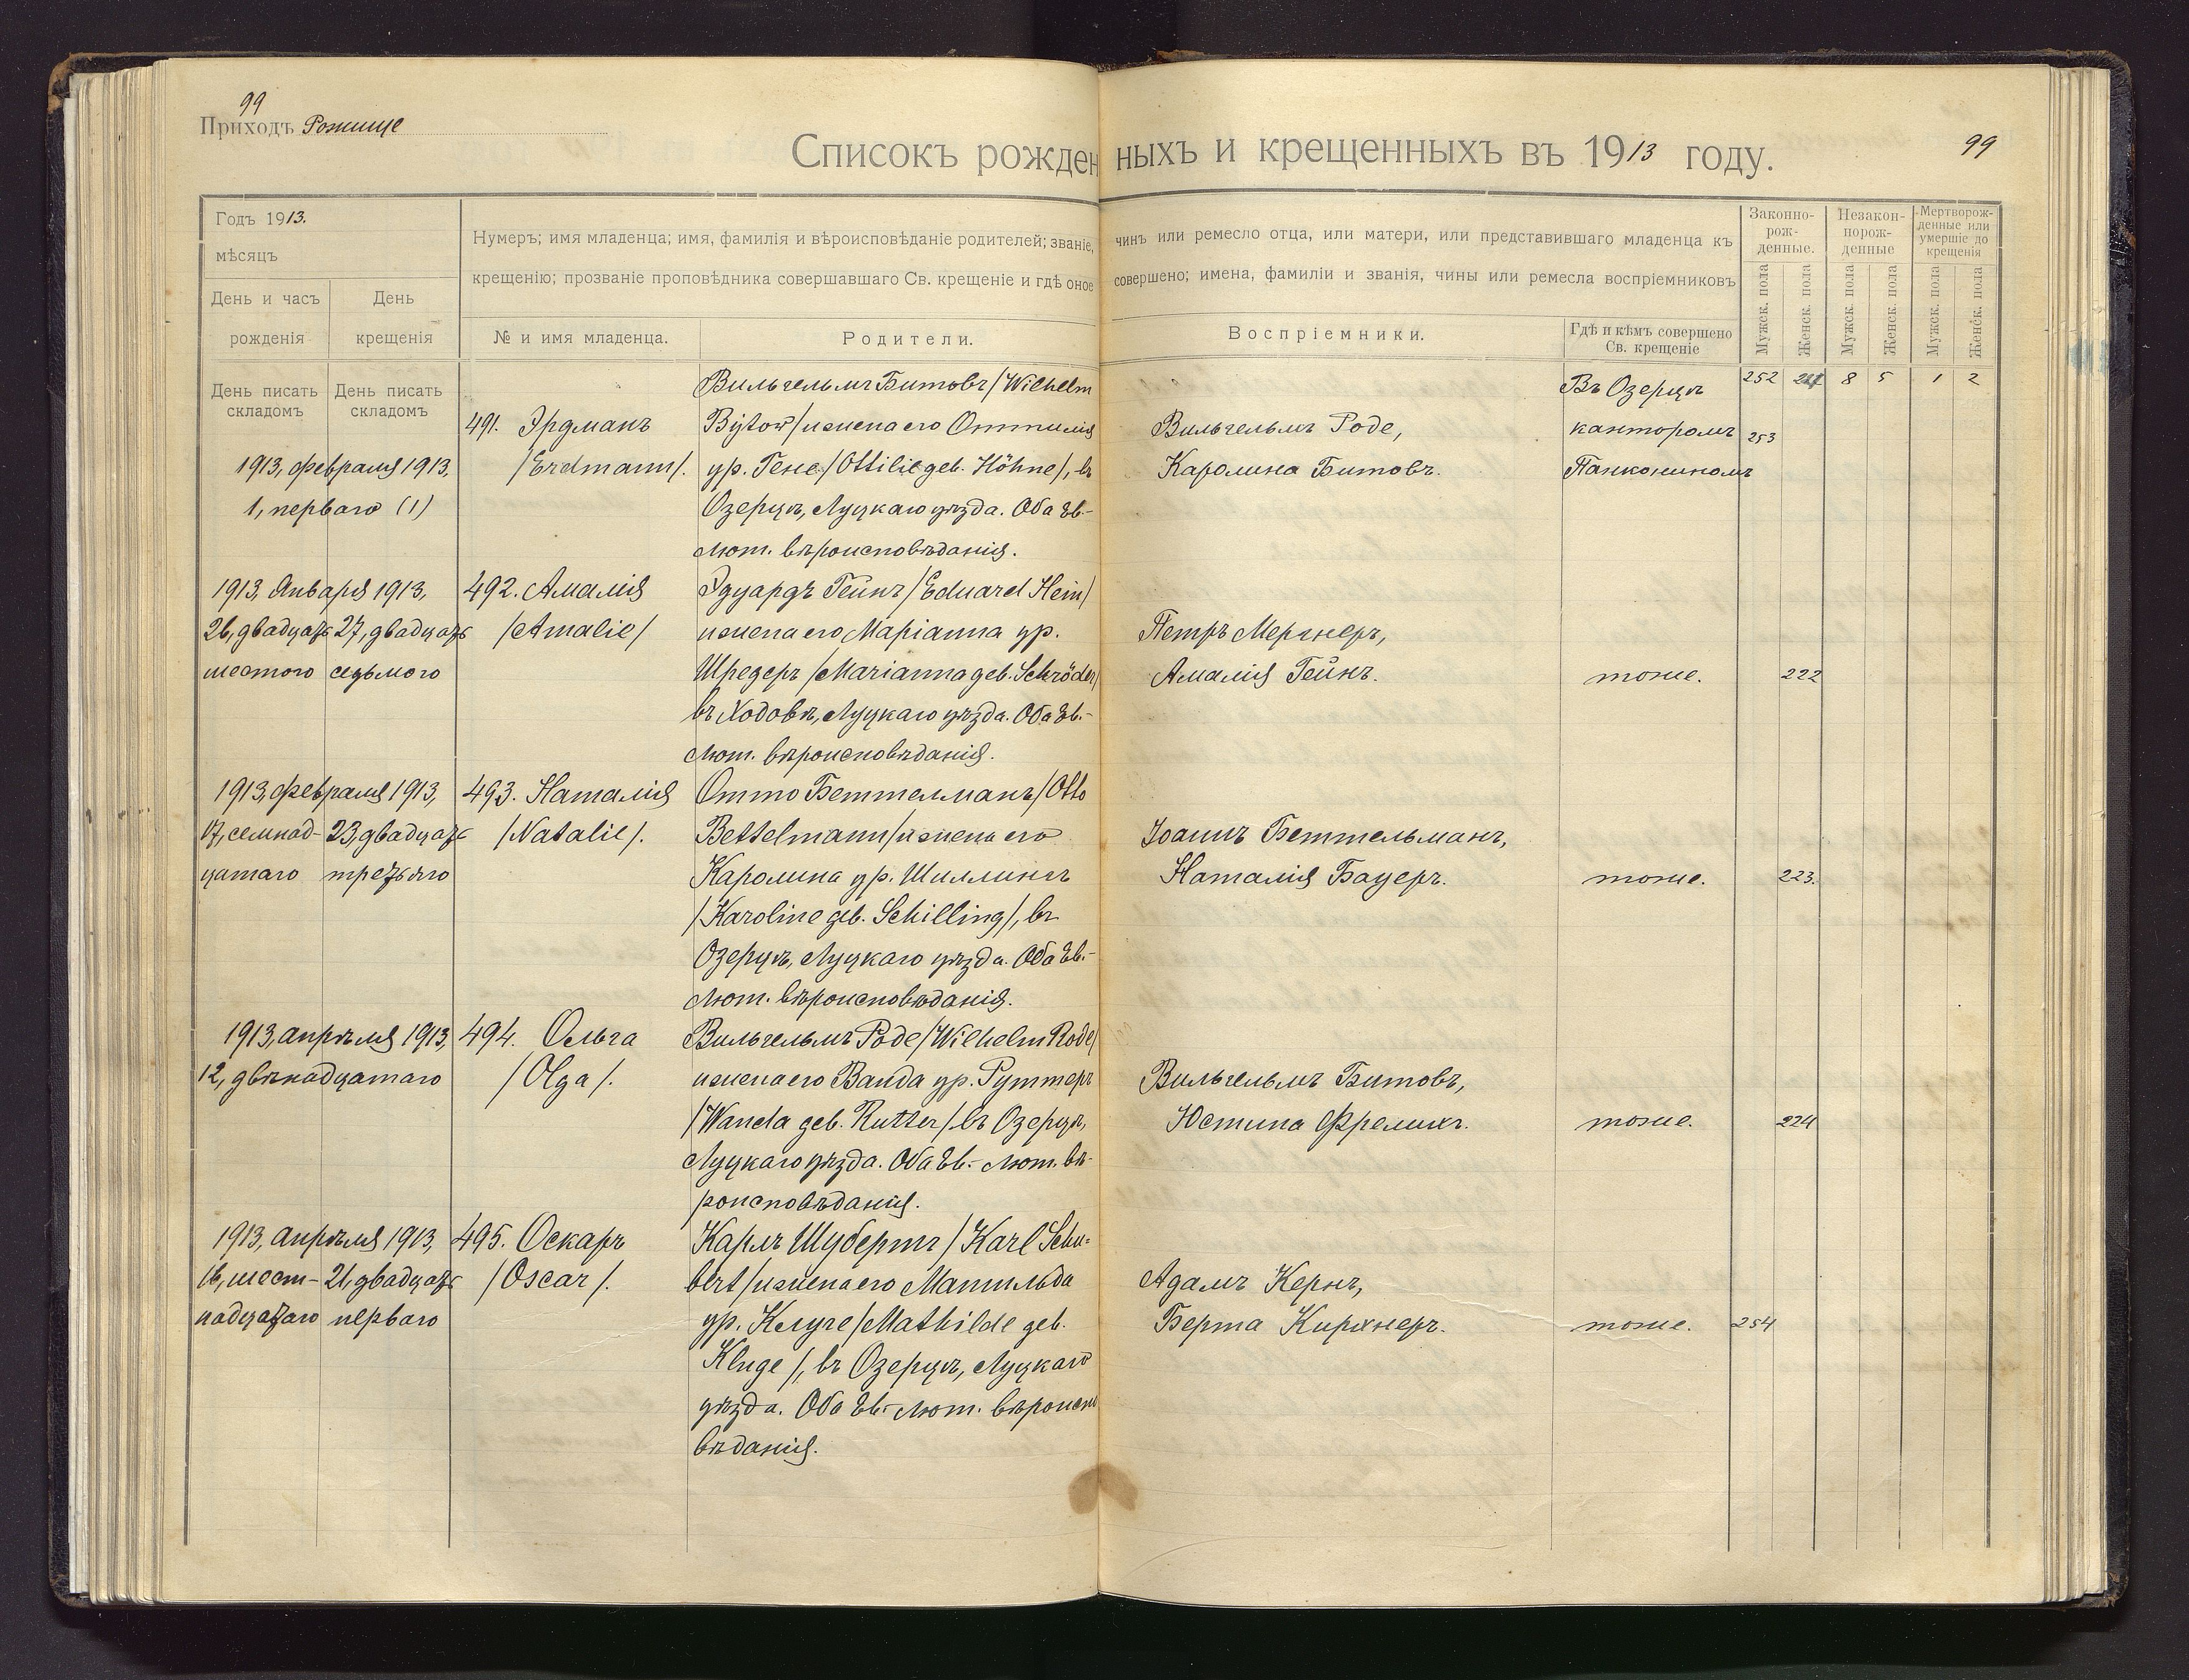 99
Приходъ Рожище
Списокъ рожденныхъ и крещенныхъ въ 1913 году.
99
Годъ 1913.
мѣсяцъ
День и часъ рожденія
День крещенія
Нумеръ; имя младенца; имя, фамилія и вѣроисповѣданіе родителей; званіе, чинъ или ремесло отца, или матери, или представившаго младенца къ
крещенію; прозваніе проповѣдника совершавшаго Св. крещеніе и гдѣ оное совершено; имена, фамиліи и званія, чины или ремесла воспріемниковъ
№ и имя младенца.
Родители.
Воспріемники.
Гдѣ и кѣмъ совершено
Св. крещеніе
Законно-
рож-
денные.
Незакон-
порож-
денные
Мертворож-
денные или
умершіе до
крещенія
Мужск. пола
Женск. пола
Мужск. пола
Женск. пола
Мужск. пола
Женск. пола
День писать
складомъ
День писать
складомъ
252 221 8 5 1 2
1913, февраля 1913,
1, перваго (1)
491. Эрдманъ
/Erdmann/.
Вильгельмъ Битовъ /Wilhelm
Bytow/ и жена его Оттилія
ур. Гене /Ottilie geb. Höhne/, въ
Озерцѣ, Луцкаго уѣзда. Оба Ев.-
Лют. вѣроисповѣданія.
Вильгельмъ Роде,
Каролина Битовъ.
Въ Озерцѣ
канторомъ
Панкониномъ
253
1913, Января 1913,
26, двадцать 27, двадцать
шестого седьмого
492. Амалія
/Amalie/
Эдуардъ Гейнъ /Eduard Hein/
и жена его Маріанна ур.
Шредеръ /Marianna geb. Schröder/
въ Ходовѣ, Луцкаго уѣзда. Оба Ев.-
Лют. вѣроисповѣданія.
Петръ Мергнеръ,
Амалія Гейнъ.
тоже.
222
1913, февраля 1913,
17, семнад- 23, двадцать
цатаго третьяго
493. Наталія
/Natalie/.
Отто Беттелманъ /Otto
Bettelmann/ и жена его
Каролина ур. Шиллингъ
/Karoline geb. Schilling/, въ
Озерцѣ, Луцкаго уѣзда. Оба Ев.-
Лют. вѣроисповѣданія.
Іоаннъ Беттельманъ,
Наталія Бауеръ.
тоже.
223.
1913, апрѣля 1913,
12, двѣнадцатаго
494. Ольга
/Olga/.
Вильгельмъ Роде /Wilhelm Rode/
и жена его Ванда ур. Руттеръ
/Wanda geb. Rutter/ въ Озерцѣ,
Луцкаго уѣзда. Оба Ев.- Лют. вѣ-
роисповѣданія.
Вильгельмъ Битовъ,
Юстина Фрелихъ.
тоже.
224
1913, апрѣля 1913,
16, шест- 21, двадцать
надцатаго перваго
495. Оскаръ
/Oscar/.
Карлъ Шубертъ /Karl Schu-
bert/ и жена его Матильда
ур. Клуге /Mathilde geb.
Kluge/, въ Озерцѣ, Луцкаго
уѣзда. Оба Ев.- Лют. вѣроиспо
вѣданія.
Адамъ Кернъ,
Берта Кирхнеръ.
тоже.
254